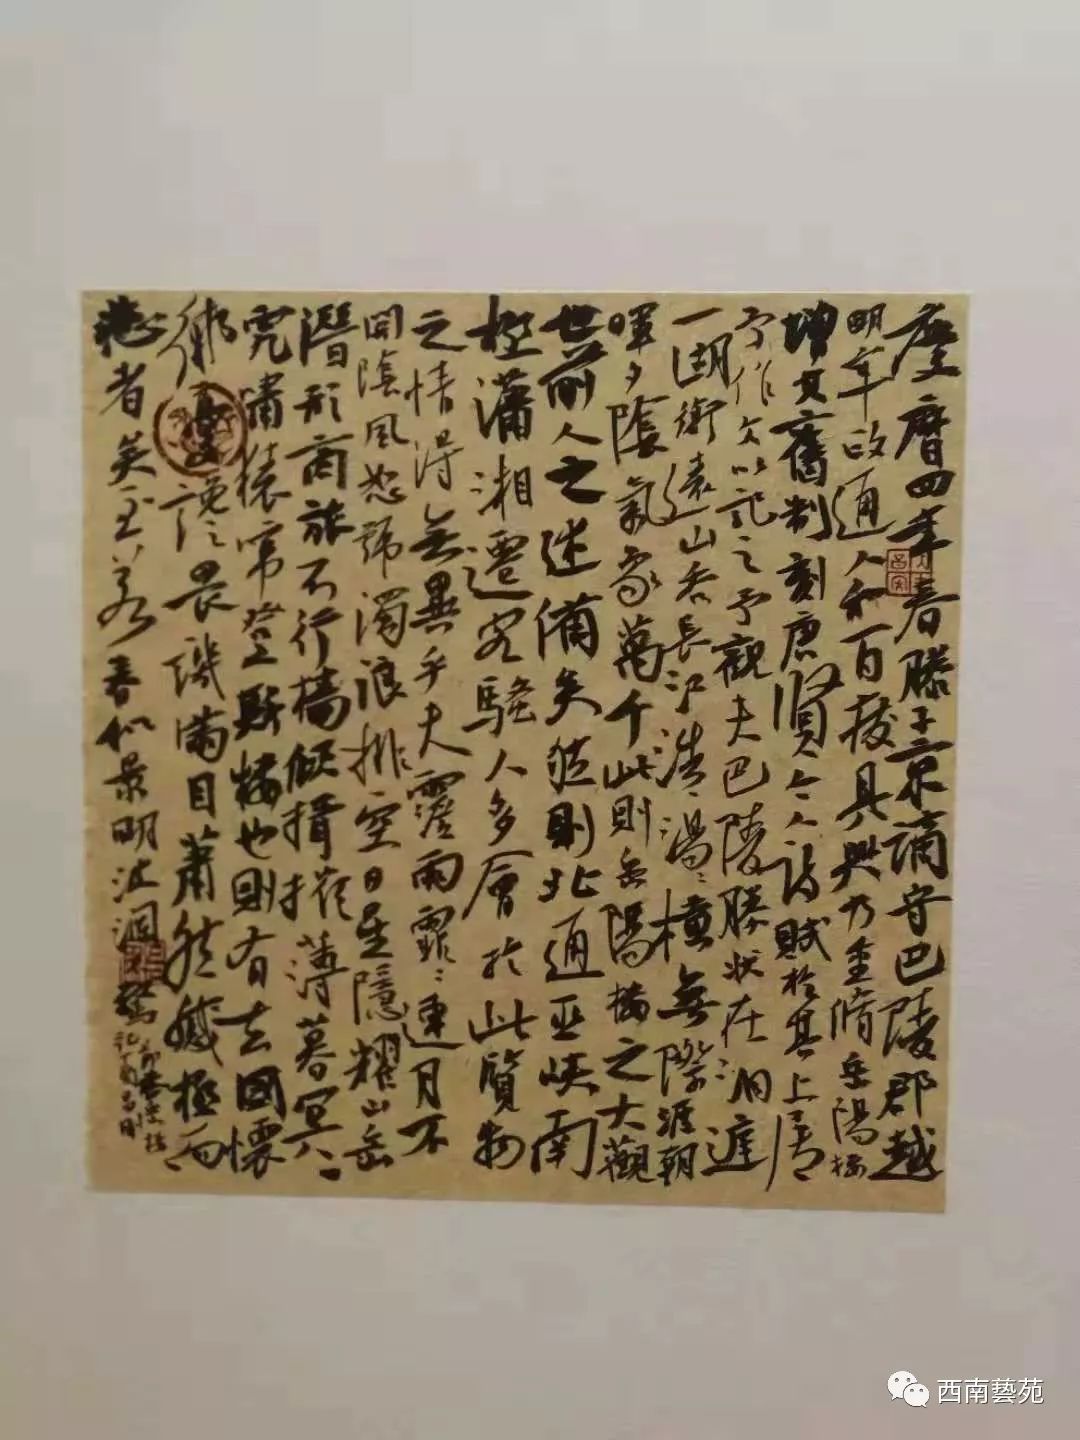 慶曆四年春滕子京謫守巴陵郡越
明年政通人和百廢具興乃重脩岳陽樓
增其舊制刻唐賢今人詩賦於其上屬
予作文以記之予觀夫巴陵勝狀在洞庭
一湖銜遠山吞長江浩浩湯湯橫無際涯朝
暉夕陰氣象萬千此則岳陽樓之大觀
也前人之述備矣然則北通巫峽南
極瀟湘遷客騷人多會於此覽物
之情得無異乎夫霪雨霏霏連月不
開陰風怒號濁浪排空日星隱耀山岳
潛形商旅不行檣傾楫摧薄暮冥冥
虎嘯猿啼登斯樓也則有去國懷
鄉憂讒畏譏滿目蕭然感極而
悲者矣至若春和景明波瀾驚
西南藝苑